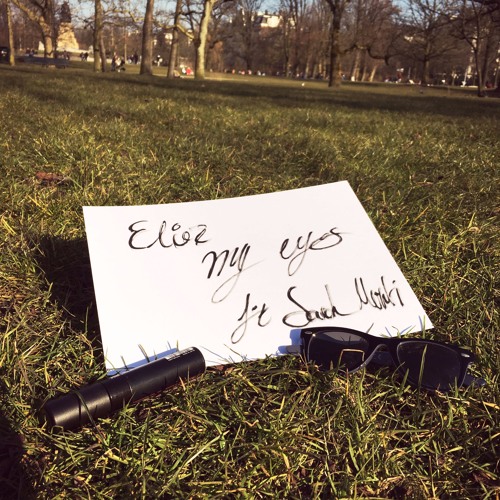 Elioz
my eyes
ft Sarah Monki